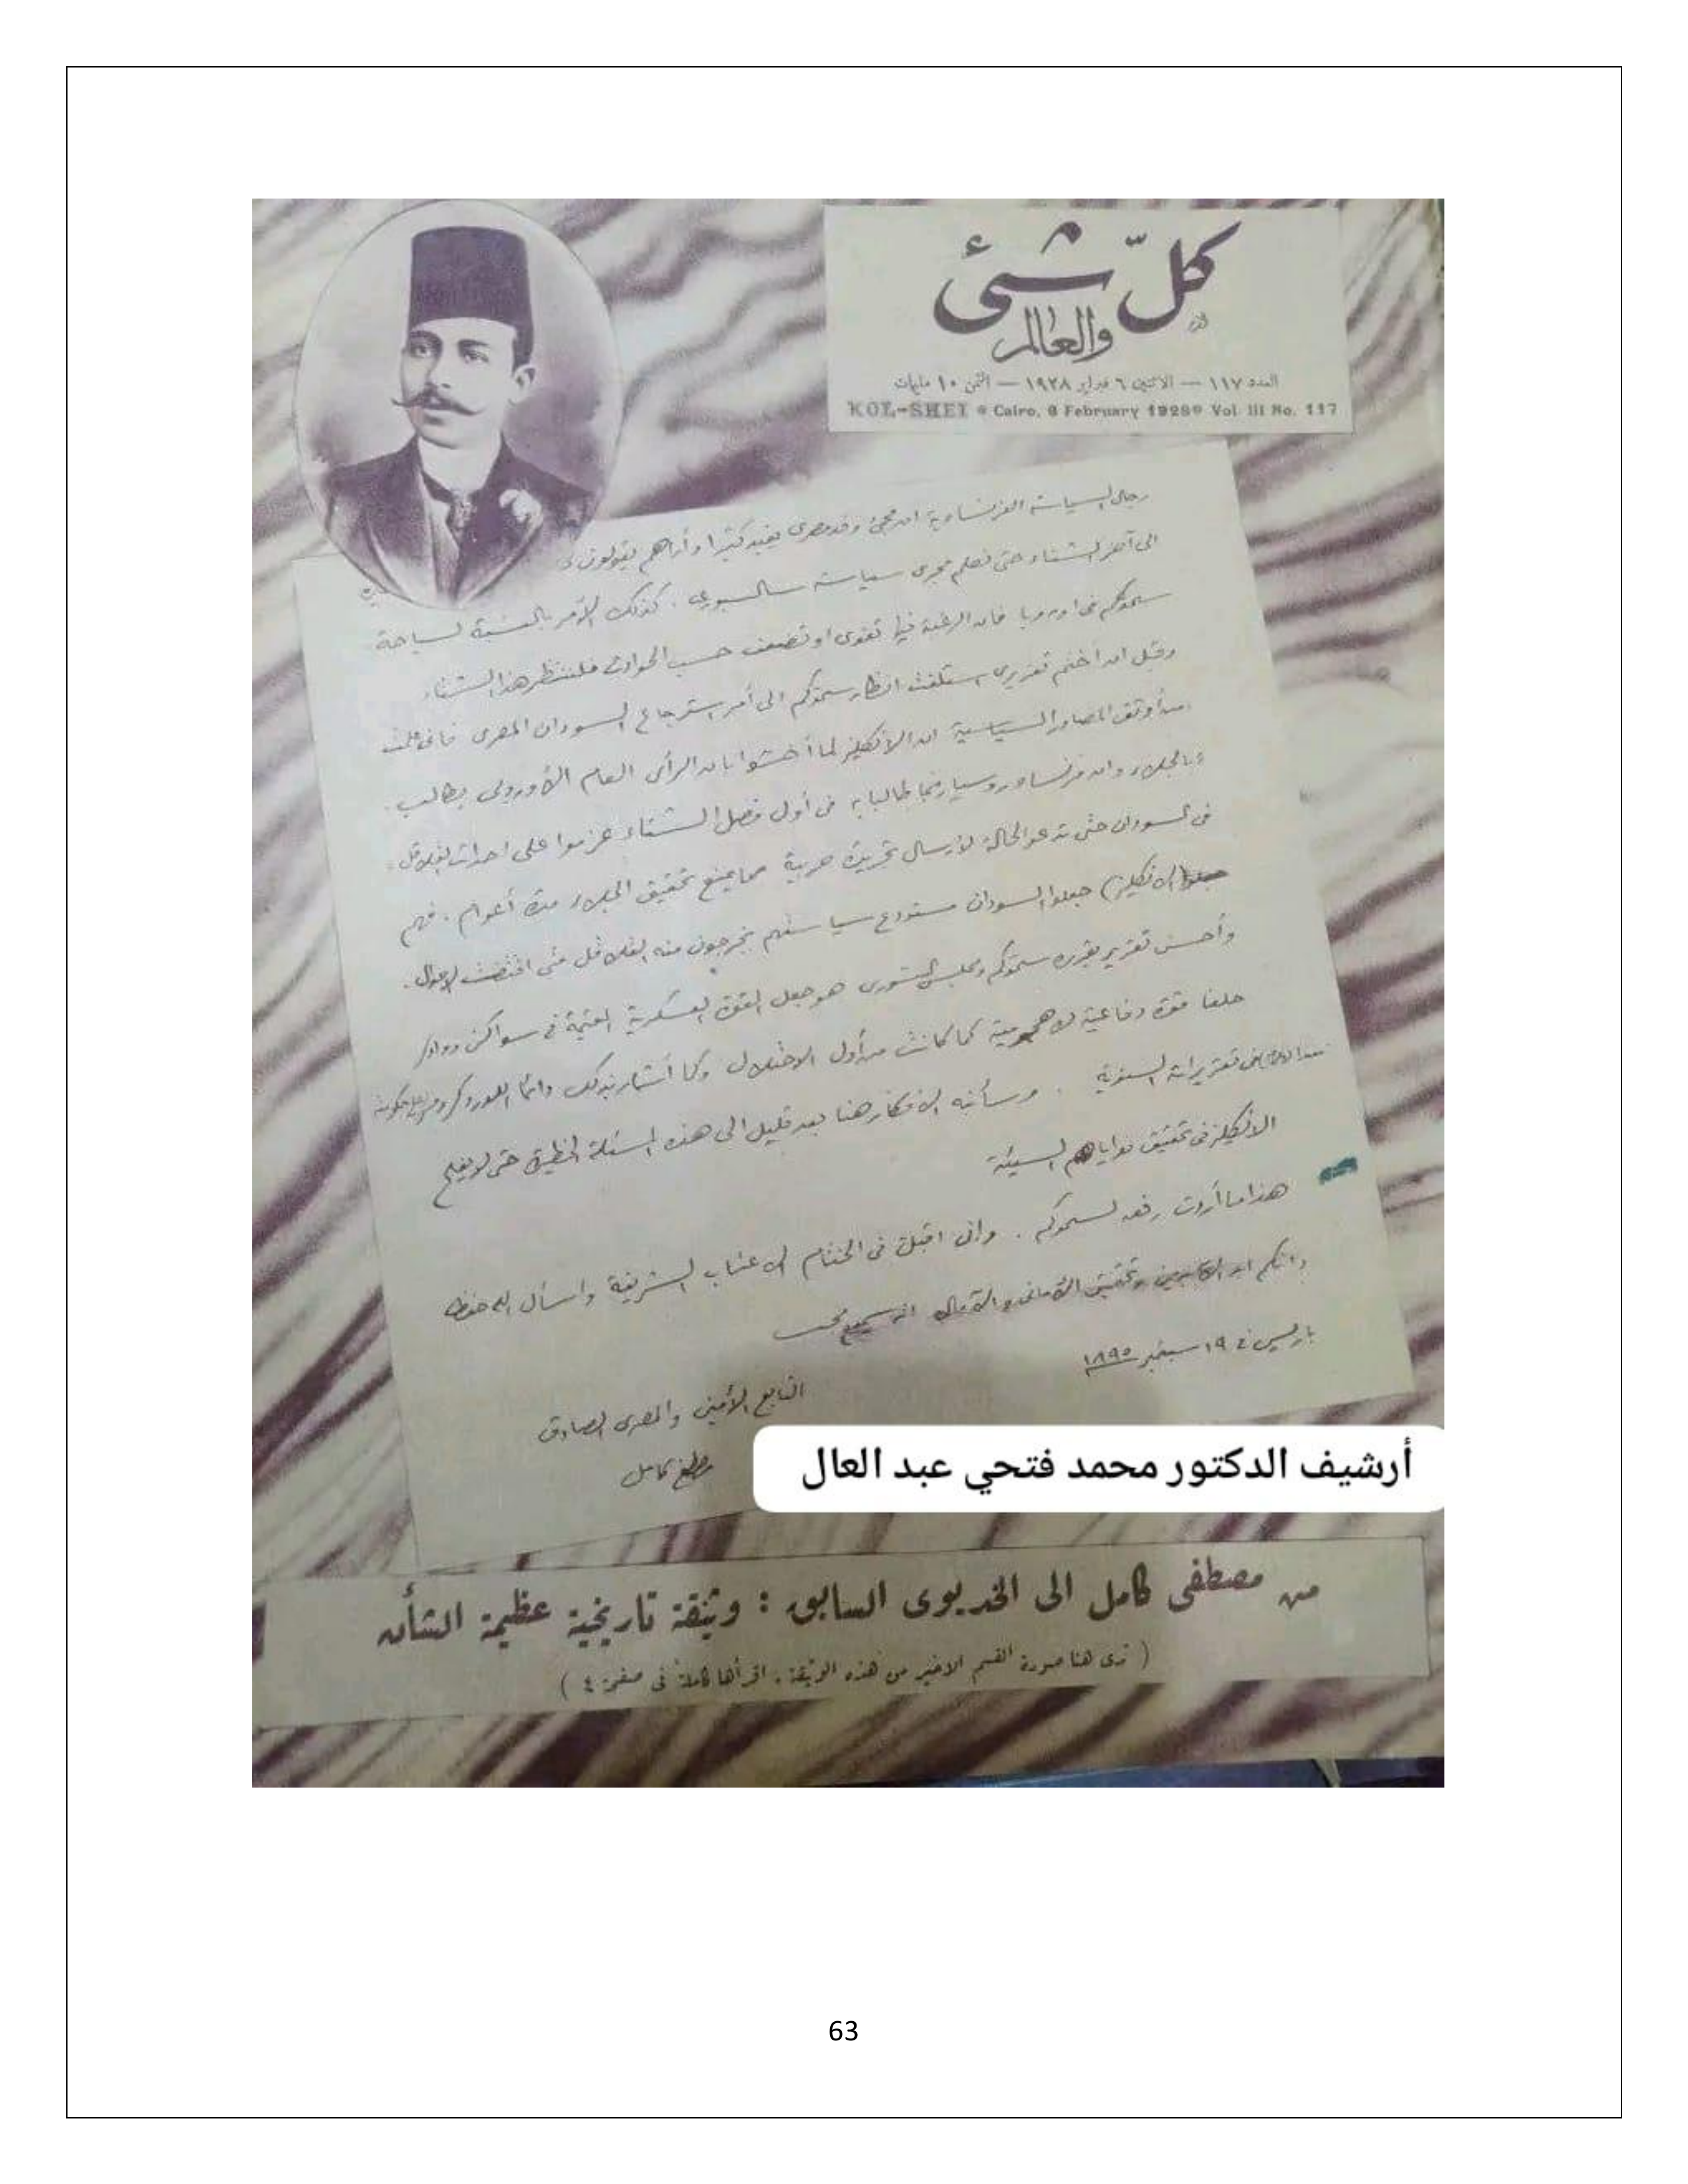 كلّ شئ
والعالم
العدد ١١٧ — الاثنين ٦ فبراير ١٩٢٨ — الثمن ١٠ مليمات
KOL-SHEI • Cairo, 6 February 1928 • Vol III No. 117
رجال السياسة الفرنساوية ان مجئ وفد مصرى يفيد كثيرا وأراهم يقولون
الى آخر الشتاء حتى نعلم مجرى سياسة سالسبورى . كذلك الأمر بالنسبة لسياحة
سموكم فى اوروبا فان الرغبة فيها تقوى او تضعف حسب الحوادث فلننتظر هذا الشتاء
وقبل ان أختم تقريرى استلفت انظار سموكم الى أمر استرجاع السودان المصرى فانى علمت
من أوثق المصادر السياسية ان الانكليز لما أحسوا بان الرأى العام الأوروبى يطالب
بالجلاء وان فرنسا وروسيا ربما طالبتا به فى أول فصل الشتاء عزموا على احداث القلاقل
فى السودان حتى تدعو الحالة لأرسال تجريدة حربية مما يمنع تحقيق الجلاء مدة أعوام . فهم
(الانكليز) جعلوا السودان مستودع سياستهم يخرجون منه القلاقل متى اقتضت الاحوال .
وأحسن تقرير يقرره سموكم ومجلس الشورى هو جعل القوة العسكرية المقيمة فى سواكن ووادى
حلفا قوة دفاعية لا هجومية كما كانت من أول الاحتلال وكما أشار بذلك دائما اللورد كرومر
فى تقريراته السنوية . وسأنبه الافكار هنا بعد قليل الى هذه المسئلة الخطيرة حتى لا يفلح
الانكليز فى تحقيق نواياهم السيئة
هذا ما أردت رفعه لسموكم . وانى اقبل فى الختام الاعتاب الشريفة واسأل الله حفظ
ذاتكم وتحقيق الأمانى والآمال انه سميع مجيب
باريس فى ١٩ سبتمبر ١٨٩٥
التابع الأمين والمصرى الصادق
مصطفى كامل
أرشيف الدكتور محمد فتحي عبد العال
من مصطفى كامل الى الخديوى السابق : وثيقة تاريخية عظيمة الشأن
( ترى هنا صورة القسم الاخير من هذه الوثيقة . اقرأها كاملة فى صفحة ٤ )
63